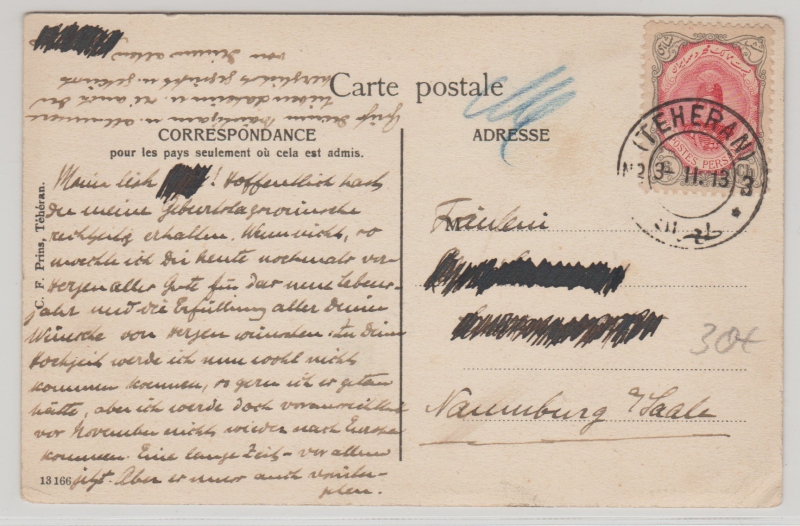 Carte postale
CORRESPONDANCE
pour les pays seulement où cela est admis.
ADRESSE
C. F. Prins, Téhéran.
13166
POSTES PERS
(TEHERAN)
No 3 - II. 13 3
Mein lieb ! Hoffentlich hast
Du meine Geburtstagswünsche
rechtzeitig erhalten. Wenn nicht, so
moechte ich Dir heute nochmals von
Herzen alles Gute für das neue Lebens-
jahr und die Erfüllung aller Deiner
Wünsche von Herzen wünschen. Zu Deiner
Hochzeit werde ich nun wohl nicht
kommen koennen, so gern ich es getan
hätte, aber ich werde doch voraussichtlich
vor November nicht wieder nach Europa
kommen. Eine lange Zeit - vor allem
jetzt. Aber es muss auch vorüber-
gehen.
Grüß Deinen Bräutigam u.
herzlichst gegrüsst u. geküsst
von Deinem alten
M
Fräulein
Naumburg a/Saale
30€